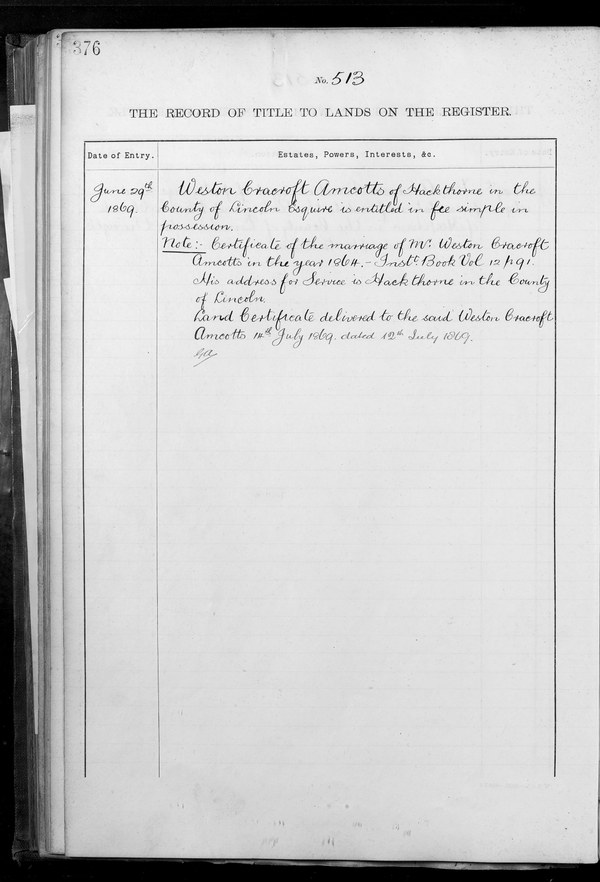 376
No. 513
THE RECORD OF TITLE TO LANDS ON THE REGISTER.
Date of Entry.
Estates, Powers, Interests, &c.
June 29th
1869.
Weston Cracroft Amcotts of Hackthorne in the
County of Lincoln Esquire is entitled in fee simple in
possession.
Note:- Certificate of the marriage of Mr. Weston Cracroft
Amcotts in the year 1864.- Inst. Book Vol 12 p. 91.
His address for Service is Hackthorne in the County
of Lincoln.
Land Certificate delivered to the said Weston Cracroft
Amcotts 14th July 1869. dated 12th July 1869.